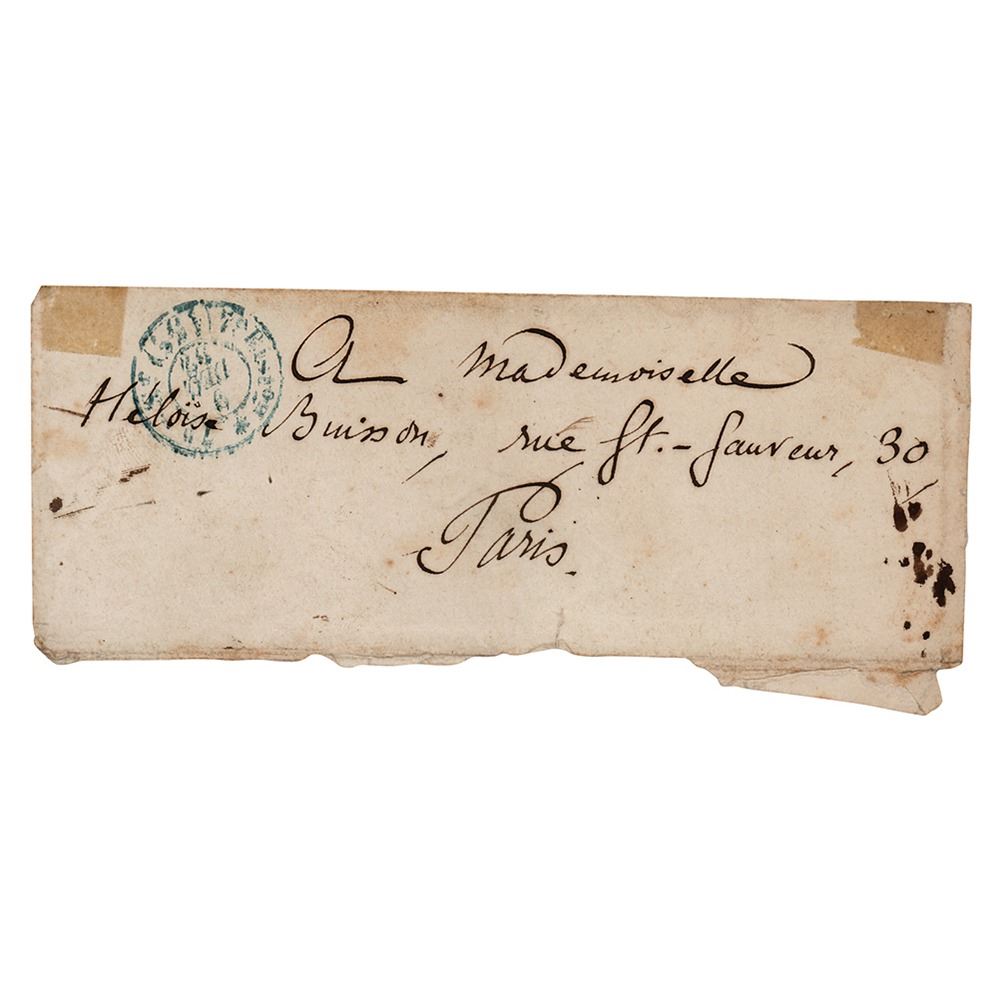 A Mademoiselle
Heloïse Buisson, rue St.-Sauveur, 30
Paris.